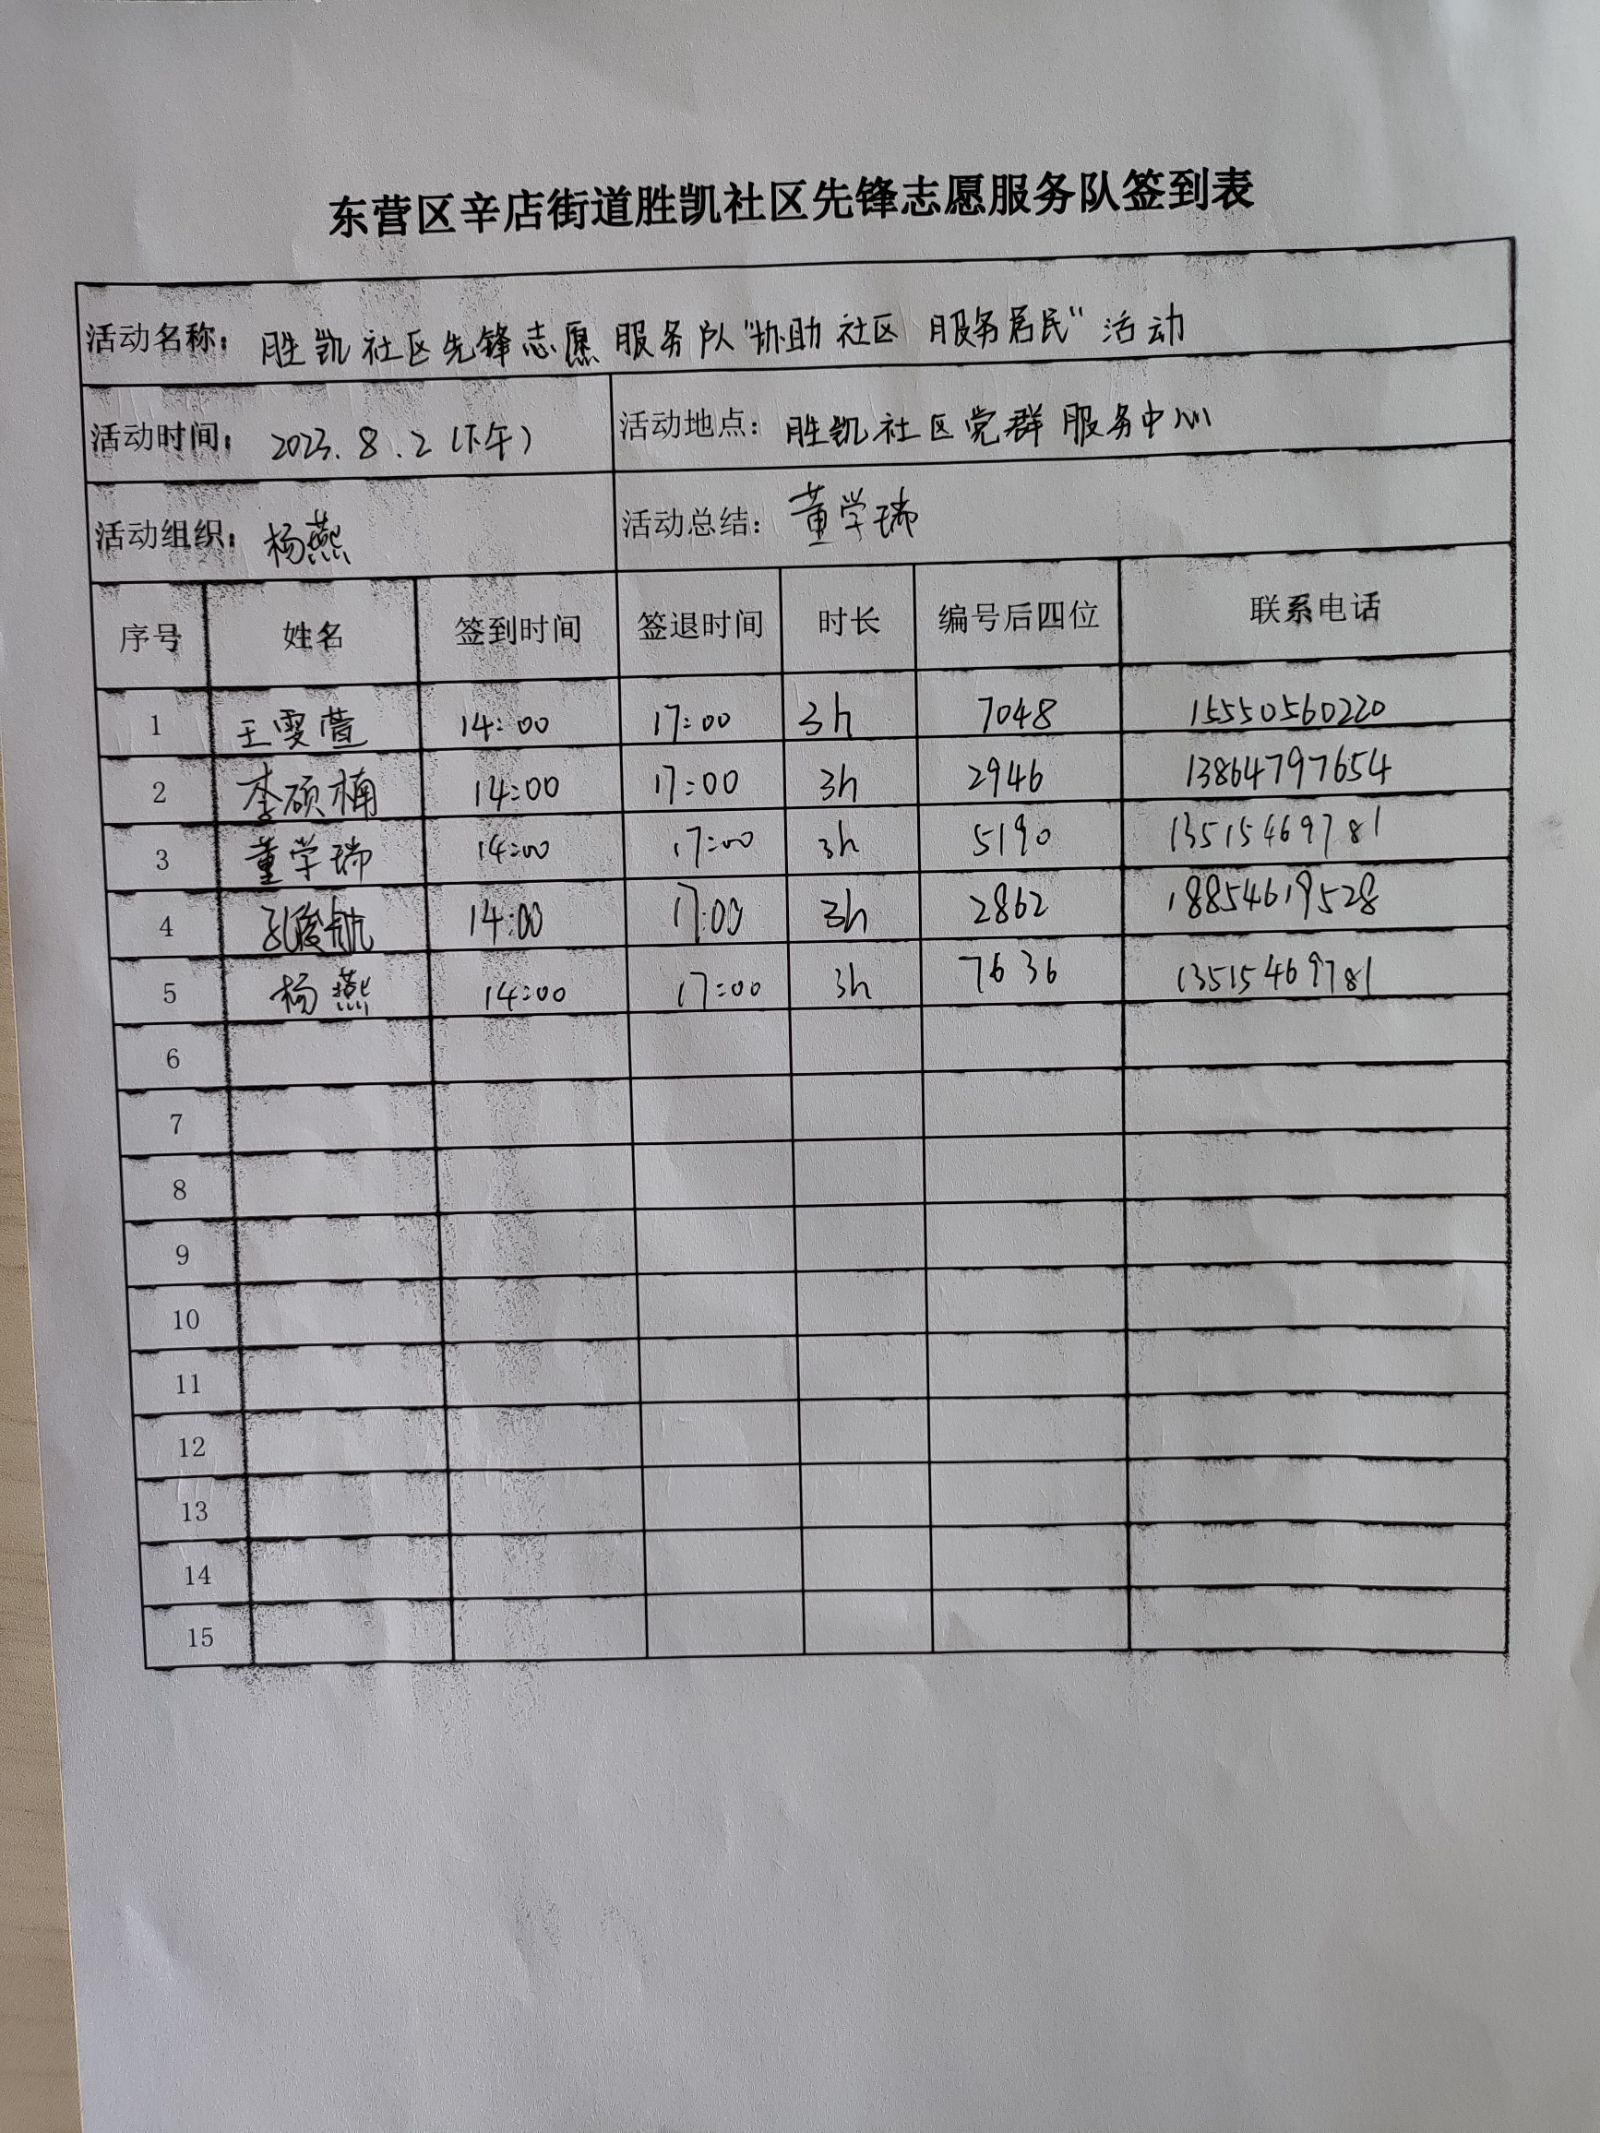 东营区辛店街道胜凯社区先锋志愿服务队签到表
活动名称：胜凯社区先锋志愿服务队"协助社区 服务居民"活动
活动时间：2023.8.2（下午） 活动地点：胜凯社区党群服务中心
活动组织：杨燕 活动总结：董学瑞
序号 姓名 签到时间 签退时间 时长 编号后四位 联系电话
1 王雯萱 14:00 17:00 3h 7048 15550560220
2 李硕楠 14:00 17:00 3h 2946 13864797654
3 董学瑞 14:00 17:00 3h 5190 13515469781
4 14:00 17:00 3h 2862 18854619528
5 杨燕 14:00 17:00 3h 7636 13515469781
6
7
8
9
10
11
12
13
14
15